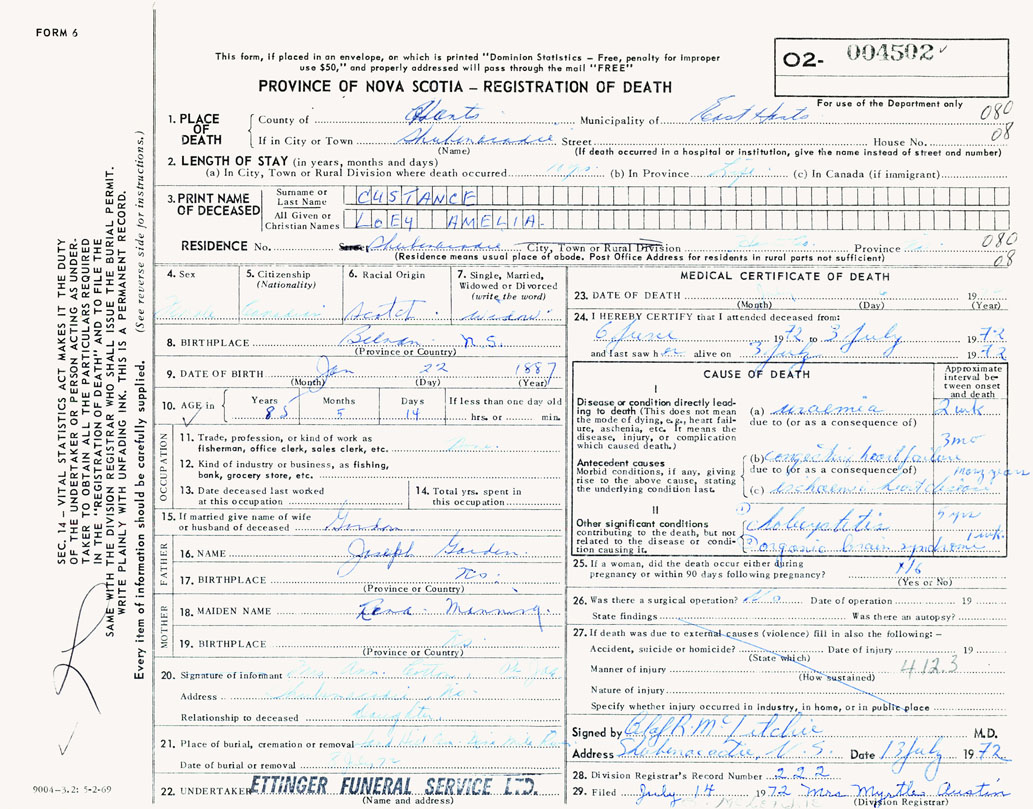 FORM 6
This form, if placed in an envelope, on which is printed "Dominion Statistics – Free, penalty for improper
use $50," and properly addressed will pass through the mail "FREE"
PROVINCE OF NOVA SCOTIA – REGISTRATION OF DEATH
O2- 004502
For use of the Department only
080
08
1. PLACE OF DEATH County of Hants Municipality of East Hants
If in City or Town Shubenacadie Street House No.
(Name) (If death occurred in a hospital or institution, give the name instead of street and number)
2. LENGTH OF STAY (in years, months and days)
(a) In City, Town or Rural Division where death occurred (b) In Province Life (c) In Canada (if immigrant)
3. PRINT NAME OF DECEASED Surname or Last Name CUSTANCE
All Given or Christian Names LOEY AMELIA.
RESIDENCE No. Street Shubenacadie City, Town or Rural Division Province 080
(Residence means usual place of abode. Post Office Address for residents in rural parts not sufficient) 08
4. Sex
5. Citizenship (Nationality) Canadian
6. Racial Origin Scotch
7. Single, Married, Widowed or Divorced (write the word) widow
8. BIRTHPLACE N.S.
(Province or Country)
9. DATE OF BIRTH Jan 22 1887
(Month) (Day) (Year)
10. AGE in Years 85 Months 5 Days 14 If less than one day old hrs. or min.
OCCUPATION
11. Trade, profession, or kind of work as fisherman, office clerk, sales clerk, etc.
12. Kind of industry or business, as fishing, bank, grocery store, etc.
13. Date deceased last worked at this occupation
14. Total yrs. spent in this occupation
15. If married give name of wife or husband of deceased Gordon
FATHER
16. NAME Joseph Gorden
17. BIRTHPLACE N.S.
(Province or Country)
MOTHER
18. MAIDEN NAME Manning
19. BIRTHPLACE
(Province or Country)
20. Signature of informant
Address Shubenacadie N.S.
Relationship to deceased daughter
21. Place of burial, cremation or removal
Date of burial or removal
22. UNDERTAKER ETTINGER FUNERAL SERVICE LTD.
(Name and address)
MEDICAL CERTIFICATE OF DEATH
23. DATE OF DEATH 19
(Month) (Day) (Year)
24. I HEREBY CERTIFY that I attended deceased from:
6 June 1972 to 3 July 1972
and last saw her alive on 3 July 1972
CAUSE OF DEATH
Approximate interval between onset and death
I
Disease or condition directly leading to death (This does not mean the mode of dying, e.g., heart failure, asthenia, etc. It means the disease, injury, or complication which caused death.)
(a) uraemia 2 wk
due to (or as a consequence of)
3 mo
Antecedent causes
Morbid conditions, if any, giving rise to the above cause, stating the underlying condition last.
(b) congestive heart failure
due to (or as a consequence of) many years
(c) ischaemic heart disease
II
Other significant conditions contributing to the death, but not related to the disease or condition causing it.
organic brain syndrome
25. If a woman, did the death occur either during pregnancy or within 90 days following pregnancy? No
(Yes or No)
26. Was there a surgical operation? No Date of operation 19
State findings Was there an autopsy?
27. If death was due to external causes (violence) fill in also the following: –
Accident, suicide or homicide? Date of injury 19
(State which)
Manner of injury 412.3
(How sustained)
Nature of injury
Specify whether injury occurred in industry, in home, or in public place
Signed by M.D.
Address Shubenacadie, N.S. Date 13 July 1972
28. Division Registrar's Record Number 222
29. Filed July 14 1972 Mrs Myrtle Austin
(Division Registrar)
SEC. 14 – VITAL STATISTICS ACT MAKES IT THE DUTY
OF THE UNDERTAKER OR PERSON ACTING AS UNDERTAKER
TO OBTAIN ALL THE PARTICULARS REQUIRED
IN THE "REGISTRATION OF DEATH" AND TO FILE THE
SAME WITH THE DIVISION REGISTRAR WHO SHALL ISSUE THE BURIAL PERMIT.
WRITE PLAINLY WITH UNFADING INK. THIS IS A PERMANENT RECORD.
Every item of information should be carefully supplied. (See reverse side for instructions.)
9004–3.2: 5-2-69